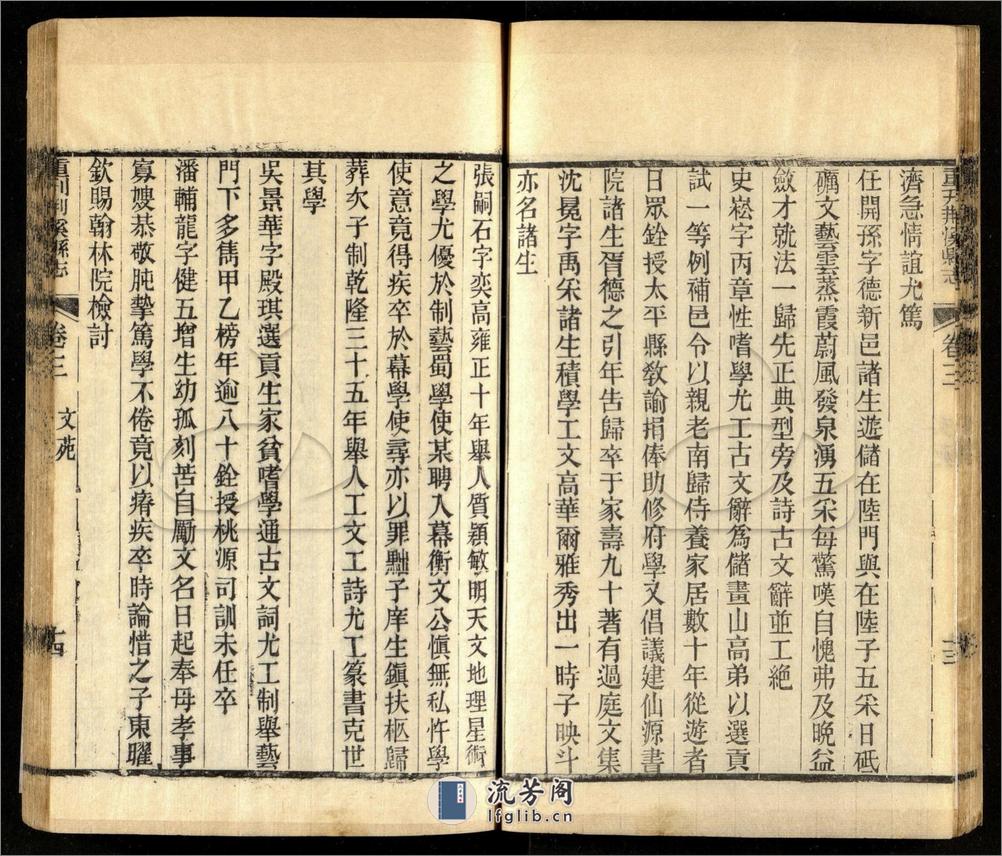 重刊荆溪縣志
卷三
十三
濟急情誼尤篤
任開孫字德新邑諸生遊儲在陸門與在陸子五采日砥
礪文藝雲蒸霞蔚風發泉湧五采每驚嘆自愧弗及晚益
斂才就法一歸先正典型旁及詩古文辭並工絶
史崧字丙章性嗜學尤工古文辭爲儲畫山高弟以選貢
試一等例補邑令以親老南歸侍養家居數十年從遊者
日眾銓授太平縣敎諭捐俸助修府學又倡議建仙源書
院諸生胥德之引年告歸卒于家壽九十著有過庭文集
沈冕字禹采諸生積學工文高華爾雅秀出一時子映斗
亦名諸生
張嗣石字奕高雍正十年舉人質穎敏明天文地理星術
之學尤優於制藝蜀學使某聘入幕衡文公愼無私忤學
使意竟得疾卒於幕學使尋亦以罪黜子庠生鎭扶柩歸
葬次子制乾隆三十五年舉人工文工詩尤工篆書克世
其學
吳景華字殿琪選貢生家貧嗜學通古文詞尤工制舉藝
門下多雋甲乙榜年逾八十銓授桃源司訓未任卒
潘輔龍字健五增生幼孤刻苦自勵文名日起奉母孝事
寡嫂恭敬肫摯篤學不倦竟以瘠疾卒時論惜之子東曜
欽賜翰林院檢討
重刊荆溪縣志
卷三
文苑
十四
流芳阁
lfglib.cn